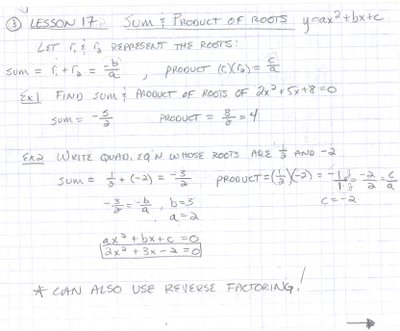 ③ LESSON 17: SUM & PRODUCT OF ROOTS y=ax²+bx+c
LET r₁ & r₂ REPRESENT THE ROOTS:
SUM = r₁ + r₂ = -b/a , PRODUCT (r₁)(r₂) = c/a
Ex1 FIND SUM & PRODUCT OF ROOTS OF 2x²+5x+8=0
SUM = -5/2 PRODUCT = 8/2 = 4
Ex2 WRITE QUAD. EQ'N WHOSE ROOTS ARE 1/2 AND -2
SUM = 1/2 + (-2) = -3/2 , PRODUCT = (1/2)(-2) = -1/1 · 2/2 = -2/2 = c/a
-3/2 = -b/a , b=3 c=-2
a=2
ax²+bx+c=0
2x²+3x-2=0
* CAN ALSO USE REVERSE FACTORING!